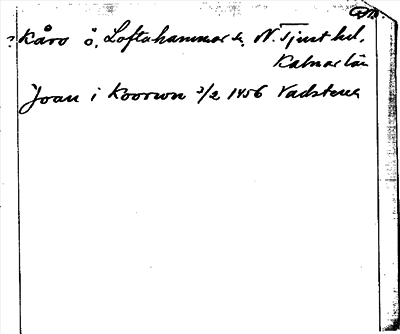 ? Kårö ö, Loftahammar sn, N. Tjust hd,
Kalmar län
Joan i Koorwn 3/2 1456 Vadstena